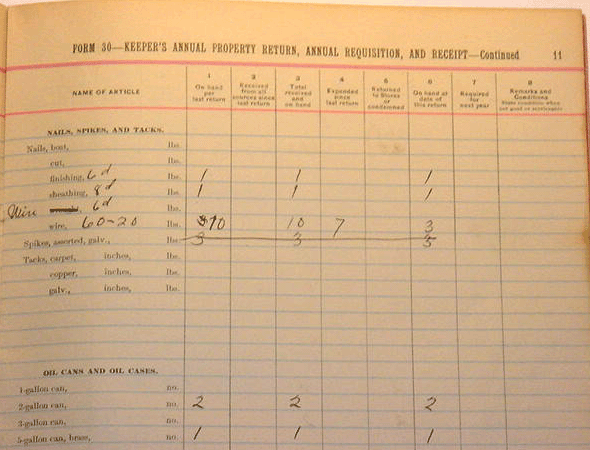 FORM 30—KEEPER'S ANNUAL PROPERTY RETURN, ANNUAL REQUISITION, AND RECEIPT—Continued 11
NAME OF ARTICLE
1 On hand per last return
2 Received from all sources since last return
3 Total received and on hand
4 Expended since last return
5 Returned to Stores or condemned
6 On hand at date of this return
7 Required for next year
8 Remarks and Conditions
NAILS, SPIKES, AND TACKS.
Nails, boat, lbs.
cut, lbs.
finishing, 6d lbs. 1 1 1
sheathing, 8d lbs. 1 1 1
Wire 6d lbs.
wire, 60-20 lbs. 10 10 7 3
Spikes, assorted, galv., lbs. 3 3 3
Tacks, carpet, inches, lbs.
copper, inches, lbs.
galv., inches, lbs.
OIL CANS AND OIL CASES.
1-gallon can, no.
2-gallon can, no. 2 2 2
3-gallon can, no.
5-gallon can, brass, no. 1 1 1